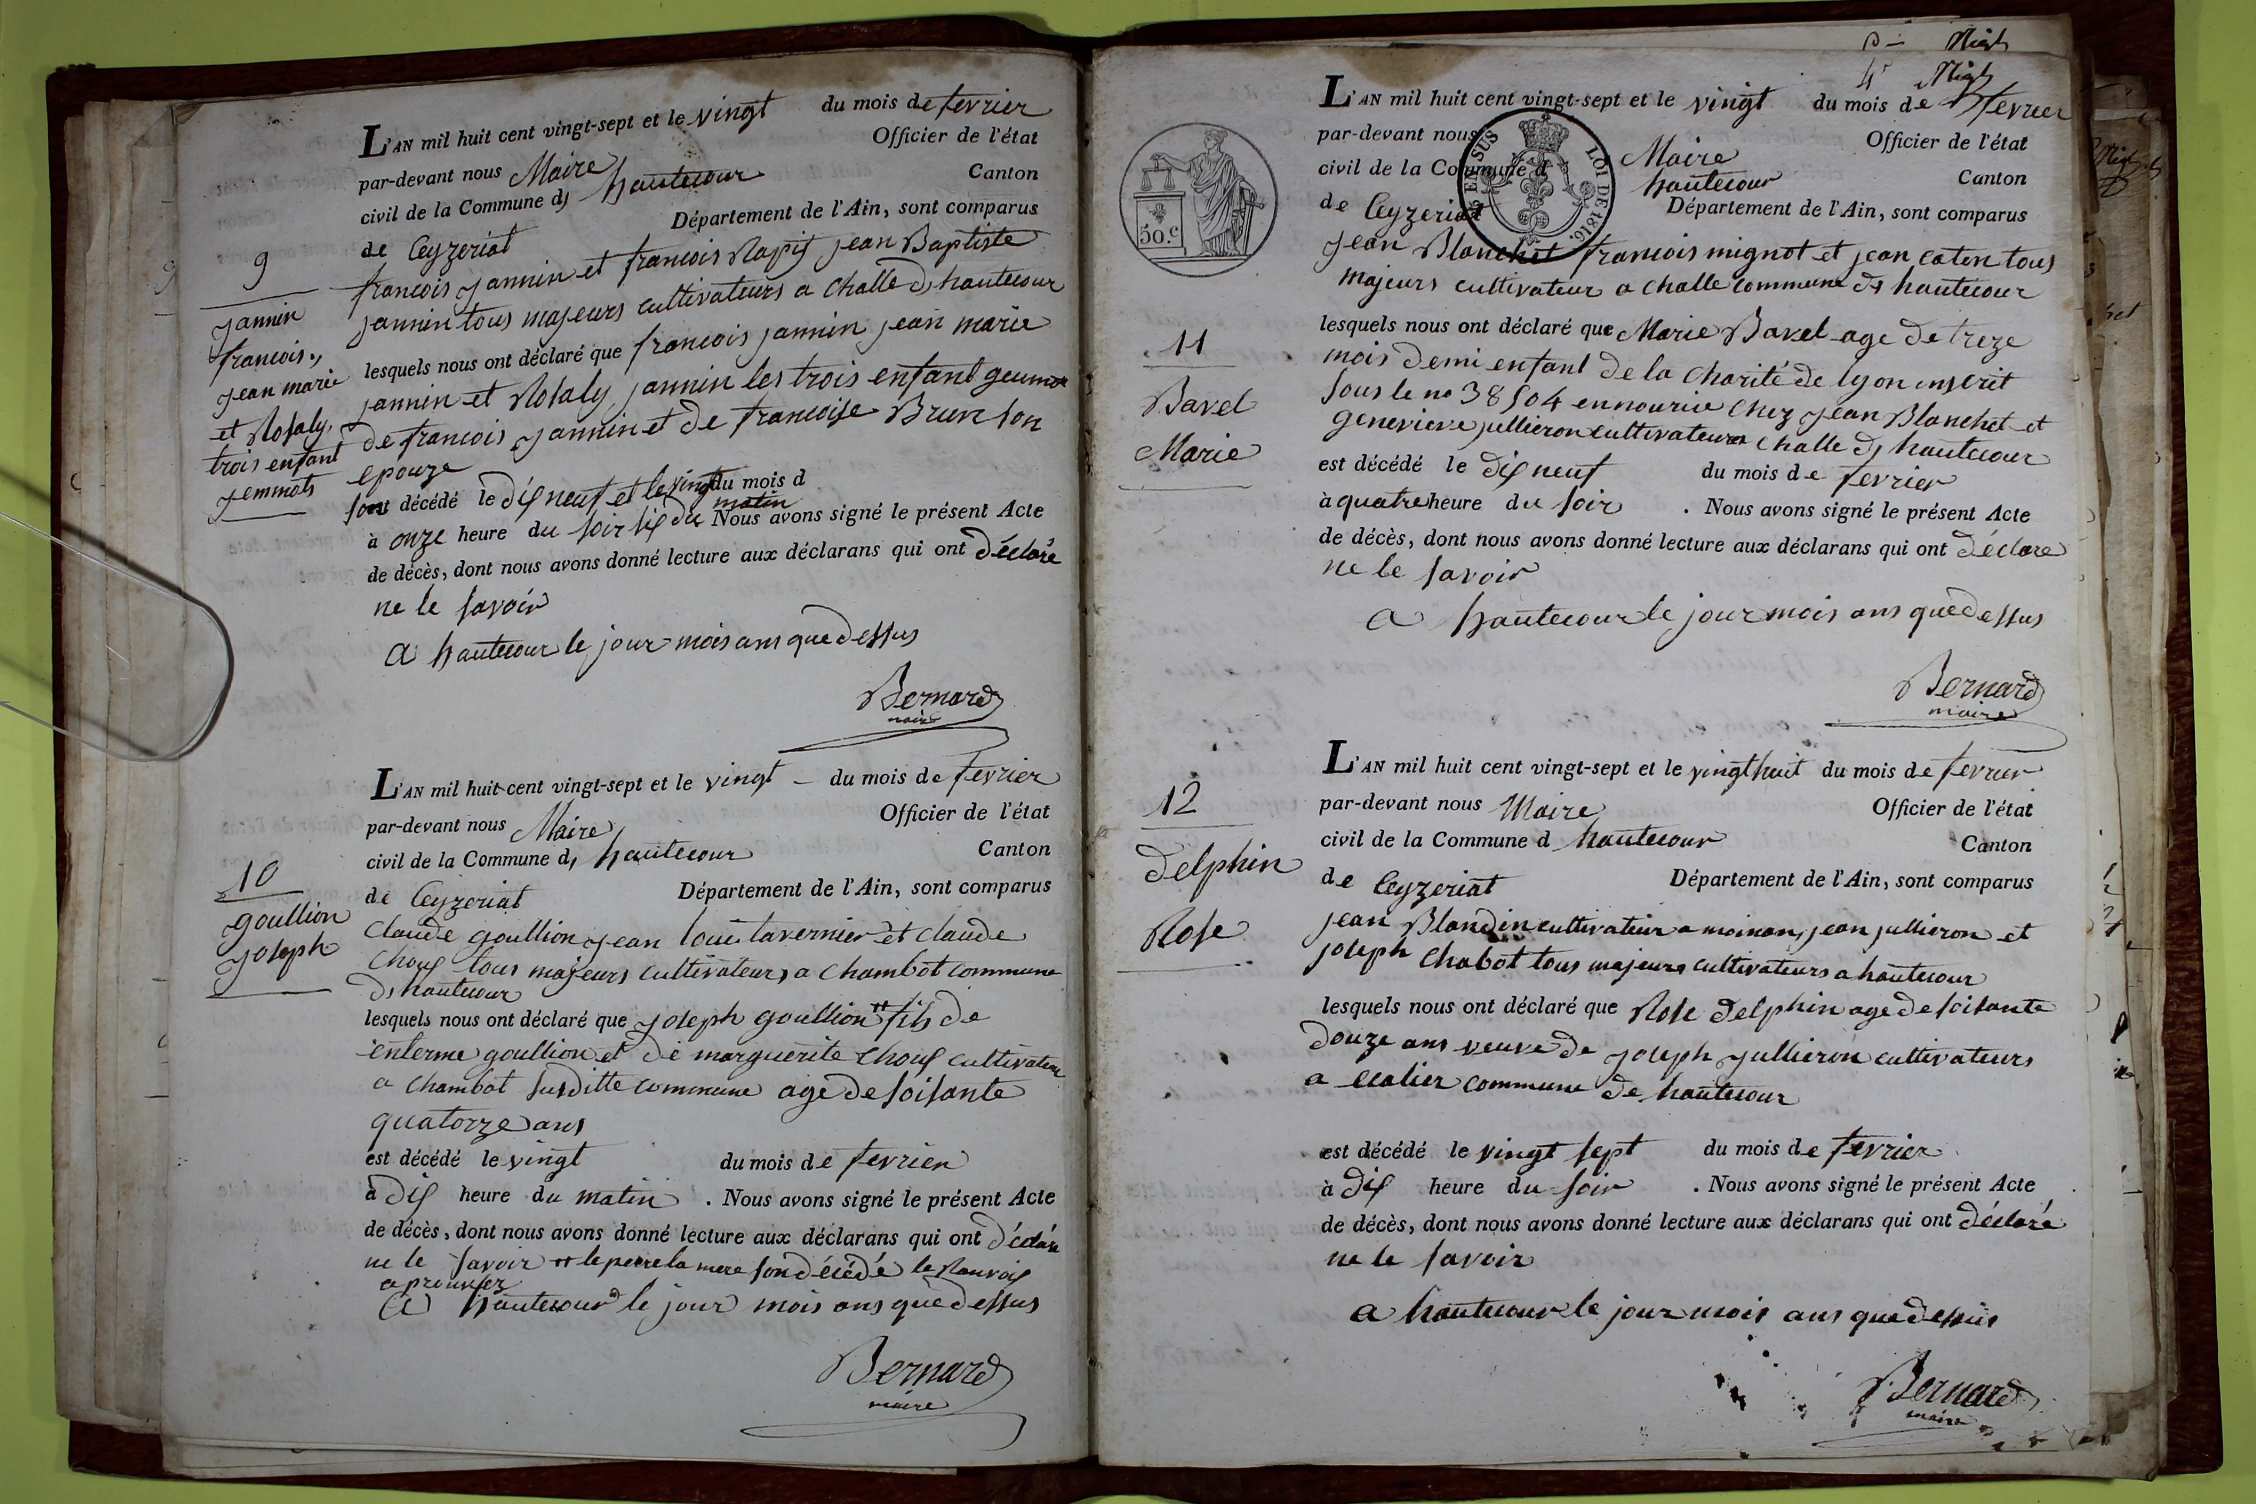 L'AN mil huit cent vingt-sept et le vingt du mois de fevrier
par-devant nous Maire Officier de l'état
civil de la Commune d, hautecour Canton
de Ceyzeriat Département de l'Ain, sont comparus
francois jannin et francois jean Baptiste
jannin tous majeurs cultivateurs a Challe d, hautecour
lesquels nous ont déclaré que francois jannin jean marie
jannin et Rosaly jannin les trois enfant
de francois jannin et de francoise Brun son
epouze
sont décédé le dix neuf et le vingt du mois d
matin
à onze heure du soir six du Nous avons signé le présent Acte
de décès, dont nous avons donné lecture aux déclarans qui ont déclaré
ne le savoir
a hautecour le jour mois ans que dessus
Bernard
maire
9
jannin
francois,
jean marie
et Rosaly,
trois enfant
jemmots
L'AN mil huit cent vingt-sept et le vingt du mois de fevrier
par-devant nous Maire Officier de l'état
civil de la Commune d, hautecour Canton
de Ceyzeriat Département de l'Ain, sont comparus
Claude goullion jean loui tavernier et claude
Choux tous majeurs cultivateurs a Chambot commune
d, hautecour
lesquels nous ont déclaré que joseph goullion # fils de
enterme goullion et de marguerite Choux cultivateur
a Chambot susditte commune age de soisante
quatorze ans
est décédé le vingt du mois de fevrier
à dix heure du matin . Nous avons signé le présent Acte
de décès, dont nous avons donné lecture aux déclarans qui ont déclaré
ne le savoir # le pere la mere son décédé le
a hautecour le jour mois ans que dessus
Bernard
maire
10
goullion
joseph
Nigt
4r Nigt
L'AN mil huit cent vingt-sept et le vingt du mois de fevrier
par-devant nous Maire Officier de l'état
civil de la Commune d hautecour Canton
de Ceyzeriat Département de l'Ain, sont comparus
jean Blanchet francois mignot et jean caten tous
majeurs cultivateur a Challe commune d, hautecour
lesquels nous ont déclaré que Marie Bavel age de treze
mois demi enfant de la Charité de lyon inscrit
sous le no 38504 en nourice chez jean Blanchet et
genevieve jullieron cultivateur a Challe d, hautecour
est décédé le dix neuf du mois de fevrier
à quatre heure du soir . Nous avons signé le présent Acte
de décès, dont nous avons donné lecture aux déclarans qui ont déclare
ne le savoir
a hautecour le jour mois ans que dessus
Bernard
maire
50.c
EN SUS
LOI DE 1816.
11
Bavel
Marie
L'AN mil huit cent vingt-sept et le vingt huit du mois de fevrier
par-devant nous Maire Officier de l'état
civil de la Commune d hautecour Canton
de Ceyzeriat Département de l'Ain, sont comparus
jean Blandin cultivateur a moinan, jean jullieron et
joseph Chabot tous majeurs cultivateurs a hautecour
lesquels nous ont déclaré que Rose delphin age de soisante
douze ans veuve de joseph jullieron cultivateurs
a ecalier commune de hautecour
est décédé le vingt sept du mois de fevrier
à dix heure du soir . Nous avons signé le présent Acte
de décès, dont nous avons donné lecture aux déclarans qui ont déclaré
ne le savoir
a hautecour le jour mois ans que dessus
Bernard
maire
12
delphin
Rose